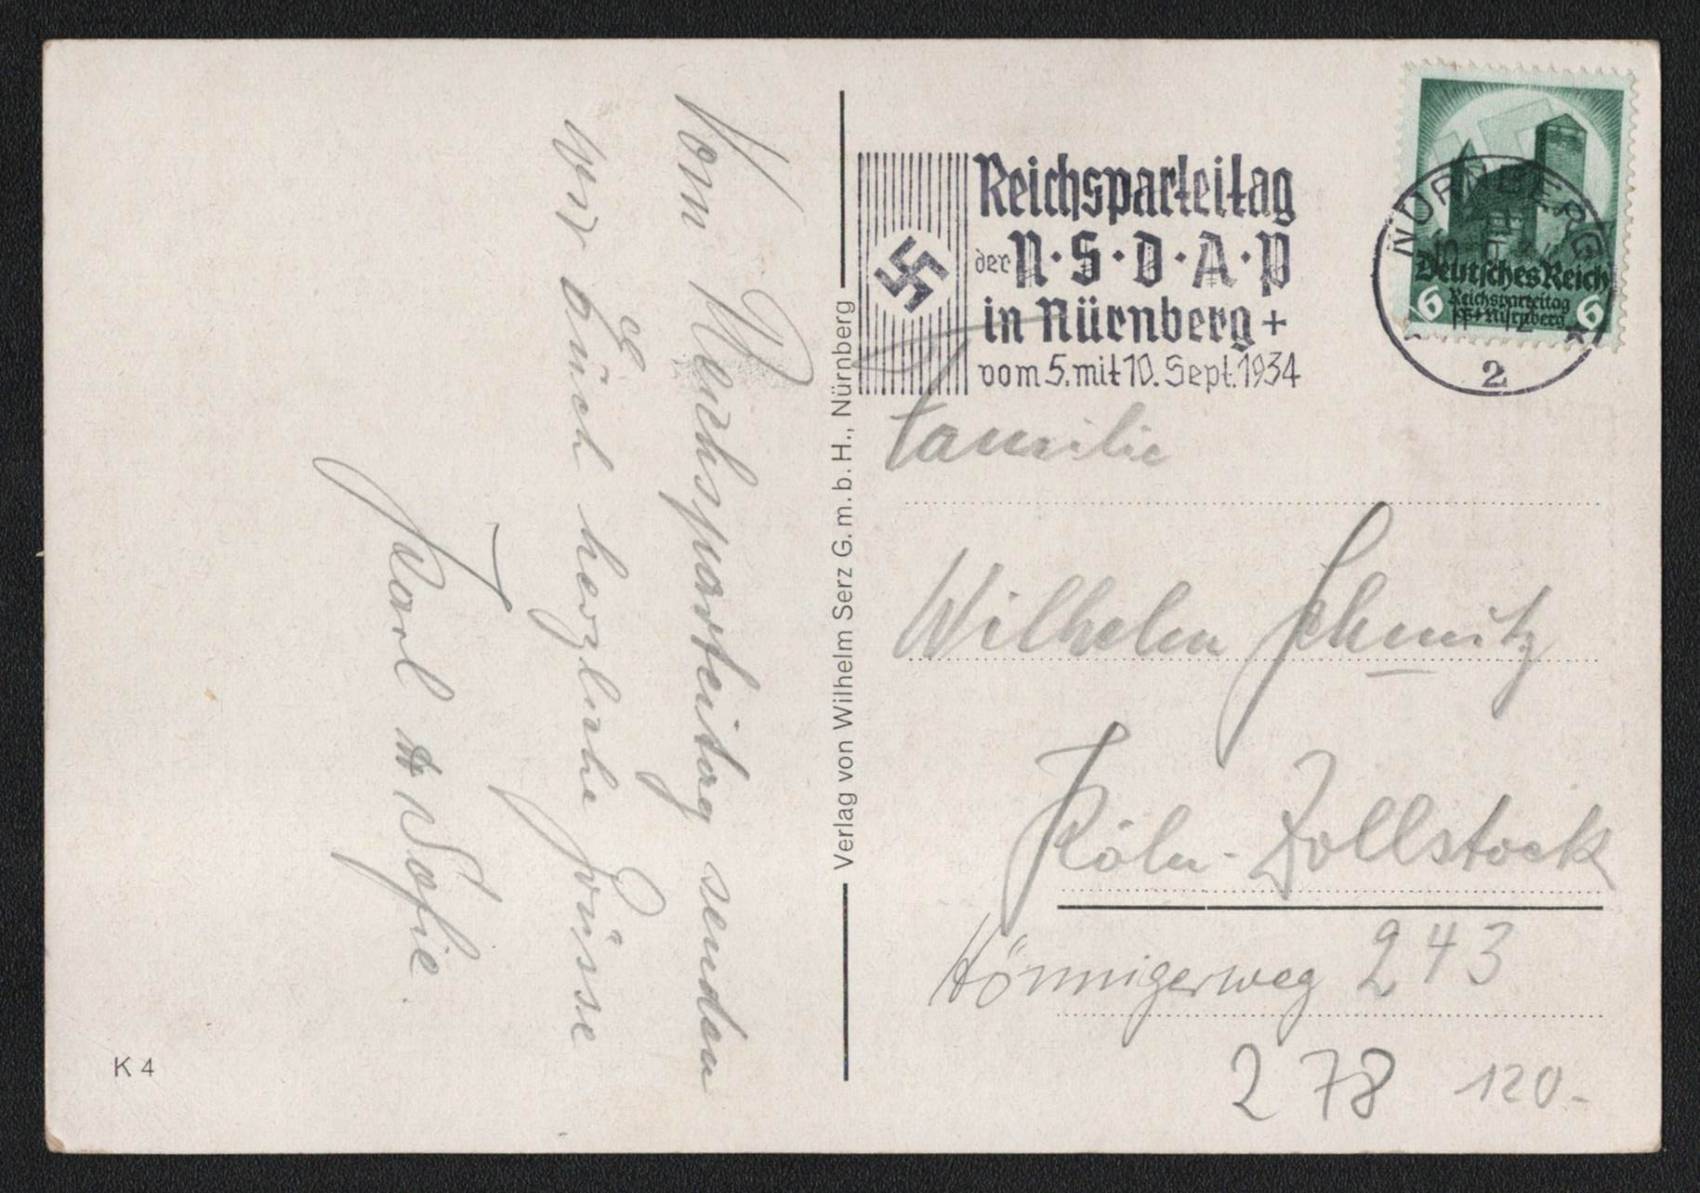 Vom Reichsparteitag senden
wir Euch herzliche Grüsse
Karl & Sofie.
K 4
Verlag von Wilhelm Serz G. m. b. H., Nürnberg
Reichsparteitag
der N·S·D·A·P
in Nürnberg +
vom 5. mit 10. Sept. 1934
NÜRNBERG
2
Deutsches Reich
6 Reichsparteitag 6
1934 Nürnberg
Familie
Wilhelm Schmitz
Köln-Zollstock
Hönnigerweg 243
278 120.-